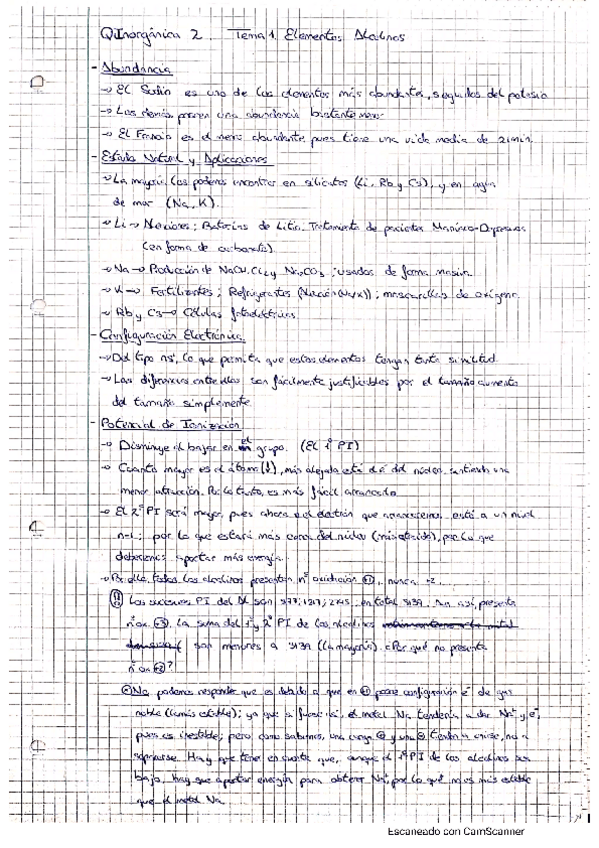 Q.Inorgánica 2. Tema 1. Elementos Alcalinos
- Abundancia
→ El Sodio es uno de los elementos más abundantes, seguidos del potasio
→ Los demás poseen una abundancia bastante
→ El Francio es el menos abundante, pues tiene una vida media de 21 min.
- Estado Natural y Aplicaciones
→ La mayoría los podemos encontrar en silicatos (Li, Rb y Cs), y en agua
de mar (Na, K).
→ Li → Baterías de Litio, Tratamiento de pacientes Maníaco-Depresivos
(en forma de carbonato)
→ Na → Producción de NaOH, Cl₂ y Na₂CO₃; usados de forma masiva.
→ K → Fertilizantes; Refrigerantes (Na/K); mascarillas de oxígeno.
→ Rb y Cs → Células fotoeléctricas.
- Configuración Electrónica
→ Del tipo ns¹, lo que permite que estos elementos tengan tanta similitud.
→ Las diferencias entre ellos son fácilmente justificables por el aumento
del tamaño simplemente
- Potencial de Ionización
→ Disminuye al bajar en el grupo. (El 1º PI)
→ Cuanto mayor es el átomo (↓), más alejado está el é del núcleo, sintiendo una
menor atracción. Por lo tanto, es más fácil arrancarlo.
→ El 2º PI será mayor, pues ahora el electrón que arrancaremos, está a un nivel
n-1, por lo que estará más cerca del núcleo (más atraído), por lo que
deberemos aportar más energía.
→ Por ello, todos los alcalinos presentan nº oxidación +1, nunca +2.
Los sucesivos PI del Al son 577; 1817; 2745, en total 5139. Aun así, presenta
nº ox +3. La suma del 1º y 2º PI de los alcalinos
son menores a 5139 (la mayoría). ¿Por qué no presenta
nº ox +2?
No podemos responder que es debido a que en + posee configuración é de gas
noble (la más estable); ya que si fuese así, el metal Na tendería a dar Na⁺ y é,
pues es inestable; pero como sabemos, una carga + y una - tienden a unirse, no a
separarse. Hay que tener en cuenta que, aunque el 1º PI de los alcalinos sea
bajo, hay que aportar energía para obtener Na⁺, por lo que no es más estable
que el metal Na.
Escaneado con CamScanner